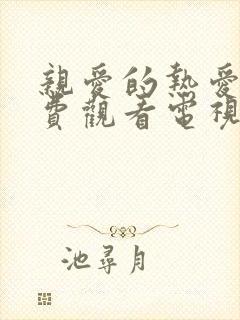 親愛的熱愛
費觀看電視
池尋月